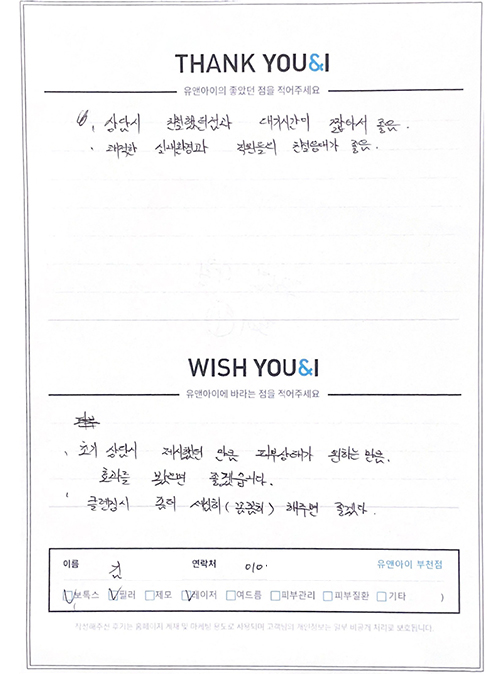 THANK YOU&I
유앤아이의 좋았던 점을 적어주세요
상담시 친절했던점과 대기시간이 짧아서 좋음.
쾌적한 실내환경과 직원들의 친절응대가 좋음.
WISH YOU&I
유앤아이에 바라는 점을 적어주세요
초기 상담시 제시했던 만큼 피부상태가 원하는 만큼.
효과를 봤으면 좋겠습니다.
클렌징시 좀더 세심히(꼼꼼히) 해주면 좋겠다.
이름 김 연락처 010. 유앤아이 부천점
보톡스 필러 제모 레이저 여드름 피부관리 피부질환 기타 )
작성해주신 후기는 홈페이지 게재 및 마케팅 용도로 사용되며 고객님의 개인정보는 일부 비공개 처리로 보호됩니다.